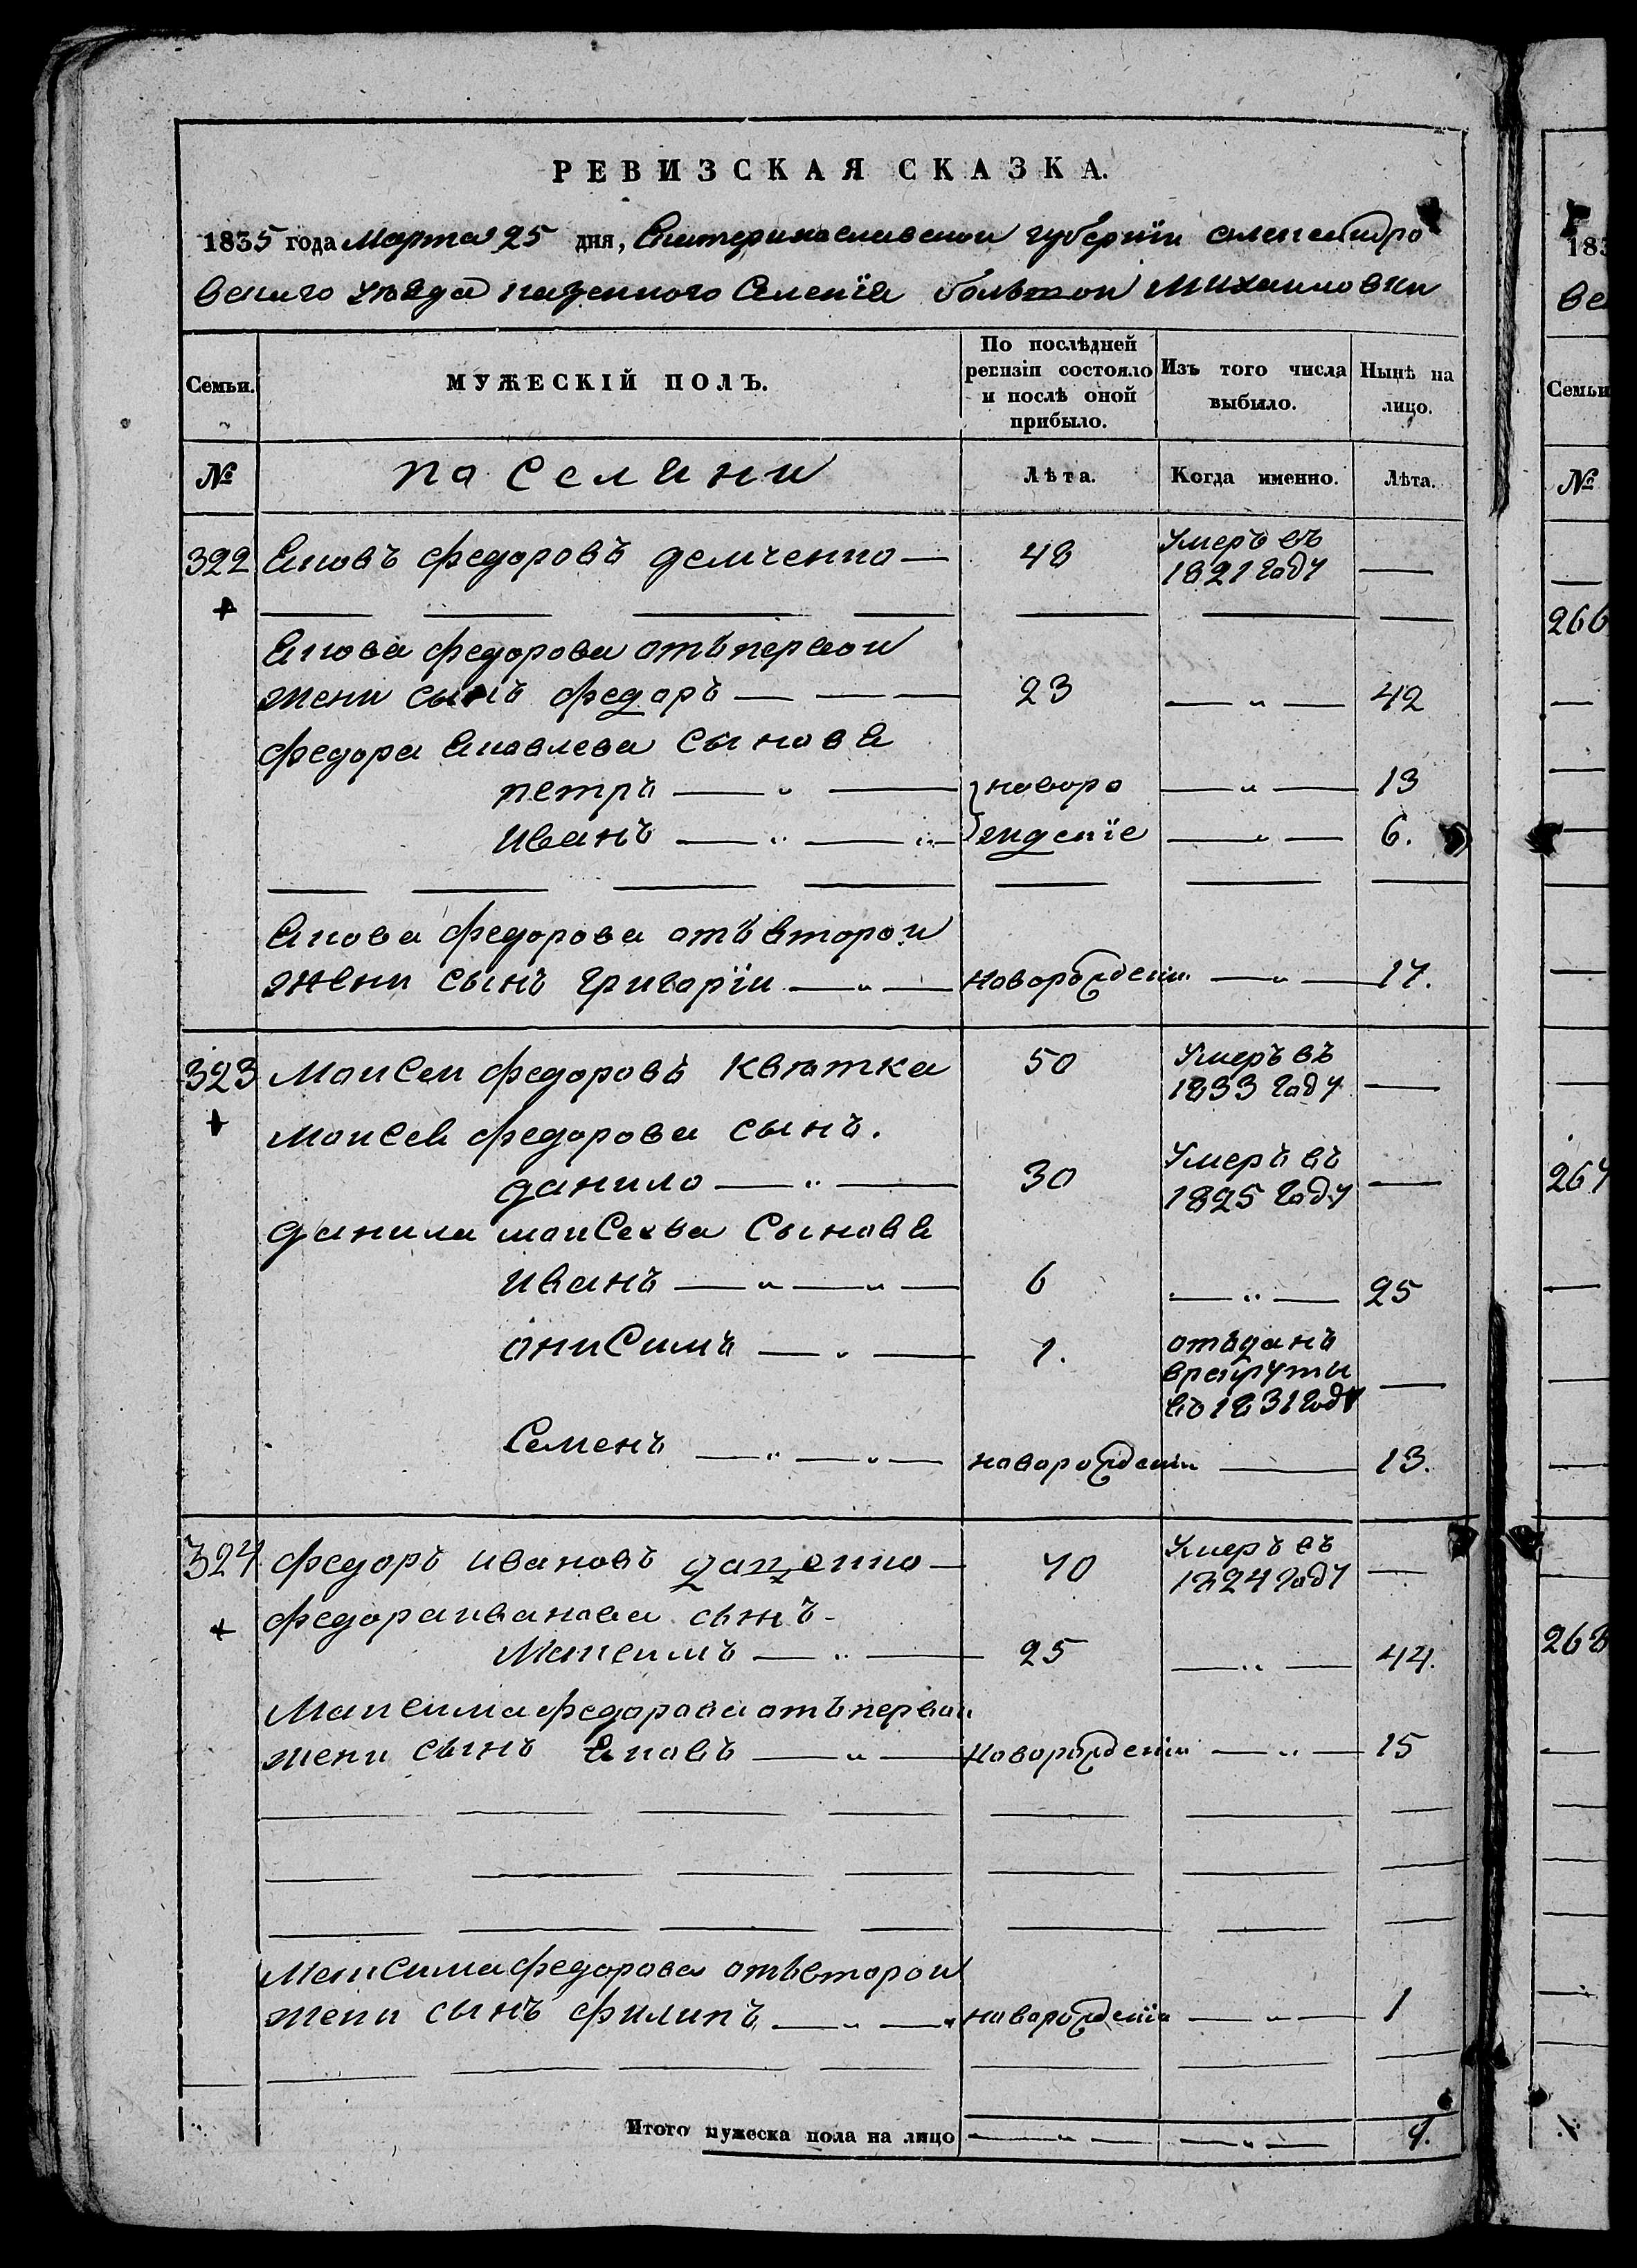 РЕВИЗСКАЯ СКАЗКА.
1835 года Марта 25 дня, Екатеринославской губернїи александро
вскаго уѣзда казенного Селенїя большой Михаиловки
Семьи. МУЖЕСКІЙ ПОЛЪ. По послѣдней ревизіи состояло и послѣ оной прибыло. Изъ того числа выбыло. Нынѣ на лицо.
№ по Селяни Лѣта. Когда именно. Лѣта.
322 Яковъ федоровъ демченко — 48 Умеръ въ 1821 году —
Якова федорова отъ первои
жени сынъ федоръ — — — 23 — „ — 42
федора Яковлева сыновя
петръ — „ — новоро — „ — 13
иванъ — „ — „ — жденїе — „ — 6.
Якова федорова отъ второи
жени сынъ григорїи — „ — новорожденїи — „ — 17.
323 Моисеи федоровъ Квѣтка 50 Умеръ въ 1833 году —
Моисея федорова сынъ.
данило — „ — 30 Умеръ въ 1825 году —
данила моисеева Сыновя
иванъ — „ — „ — 6 — „ — 25
онисимъ — „ — 1. отъданъ врекруты въ 1831 году —
Семенъ — „ — „ — новорожденїи — 13.
324 федоръ ивановъ даценко — 70 Умеръ въ 1824 году —
федора иванова сынъ
Максимъ — „ — 25 — „ — 44.
Максима федорова отъ первои
жени сынъ Яковъ — „ — новорожденїи — „ — 15
Максима федорова отъ второи
жени сынъ филипъ — „ — „ новорожденїи — „ — 1
Итого мужеска пола на лицо — „ — — „ — 9.
183
ве
Семьи
№
266
267
268